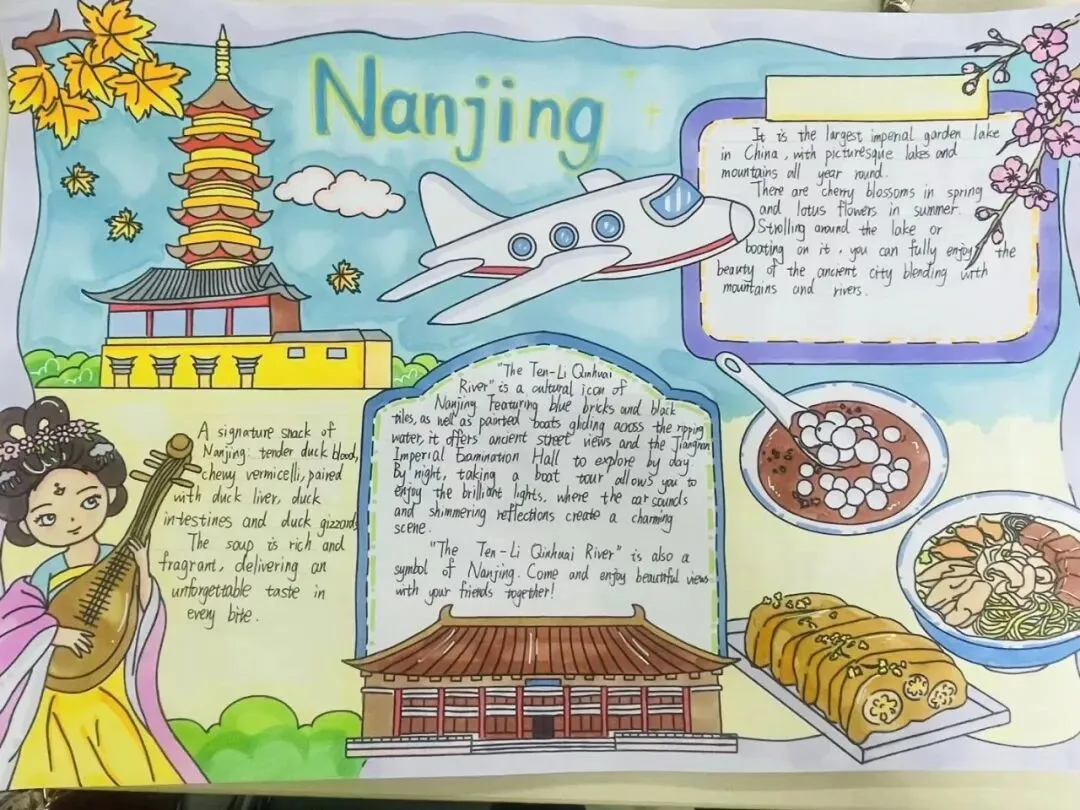 Nanjing
It is the largest imperial garden lake
in China, with picturesque lakes and
mountains all year round.
There are cherry blossoms in spring
and lotus flowers in summer.
Strolling around the lake or
boating on it, you can fully enjoy the
beauty of the ancient city blending with
mountains and rivers.
"The Ten-Li Qinhuai
River" is a cultural icon of
Nanjing. Featuring blue bricks and black
tiles, as well as painted boats gliding across the ripping
water, it offers ancient street views and the Jiangnan
Imperial Examination Hall to explore by day.
By night, taking a boat tour allows you to
enjoy the brilliant lights, where the oar sounds
and shimmering reflections create a charming
scene.
"The Ten-Li Qinhuai River" is also a
symbol of Nanjing. Come and enjoy beautiful views
with your friends together!
A signature snack of
Nanjing: tender duck blood,
chewy vermicelli, paired
with duck liver, duck
intestines and duck gizzards
The soup is rich and
fragrant, delivering an
unforgettable taste in
every bite.